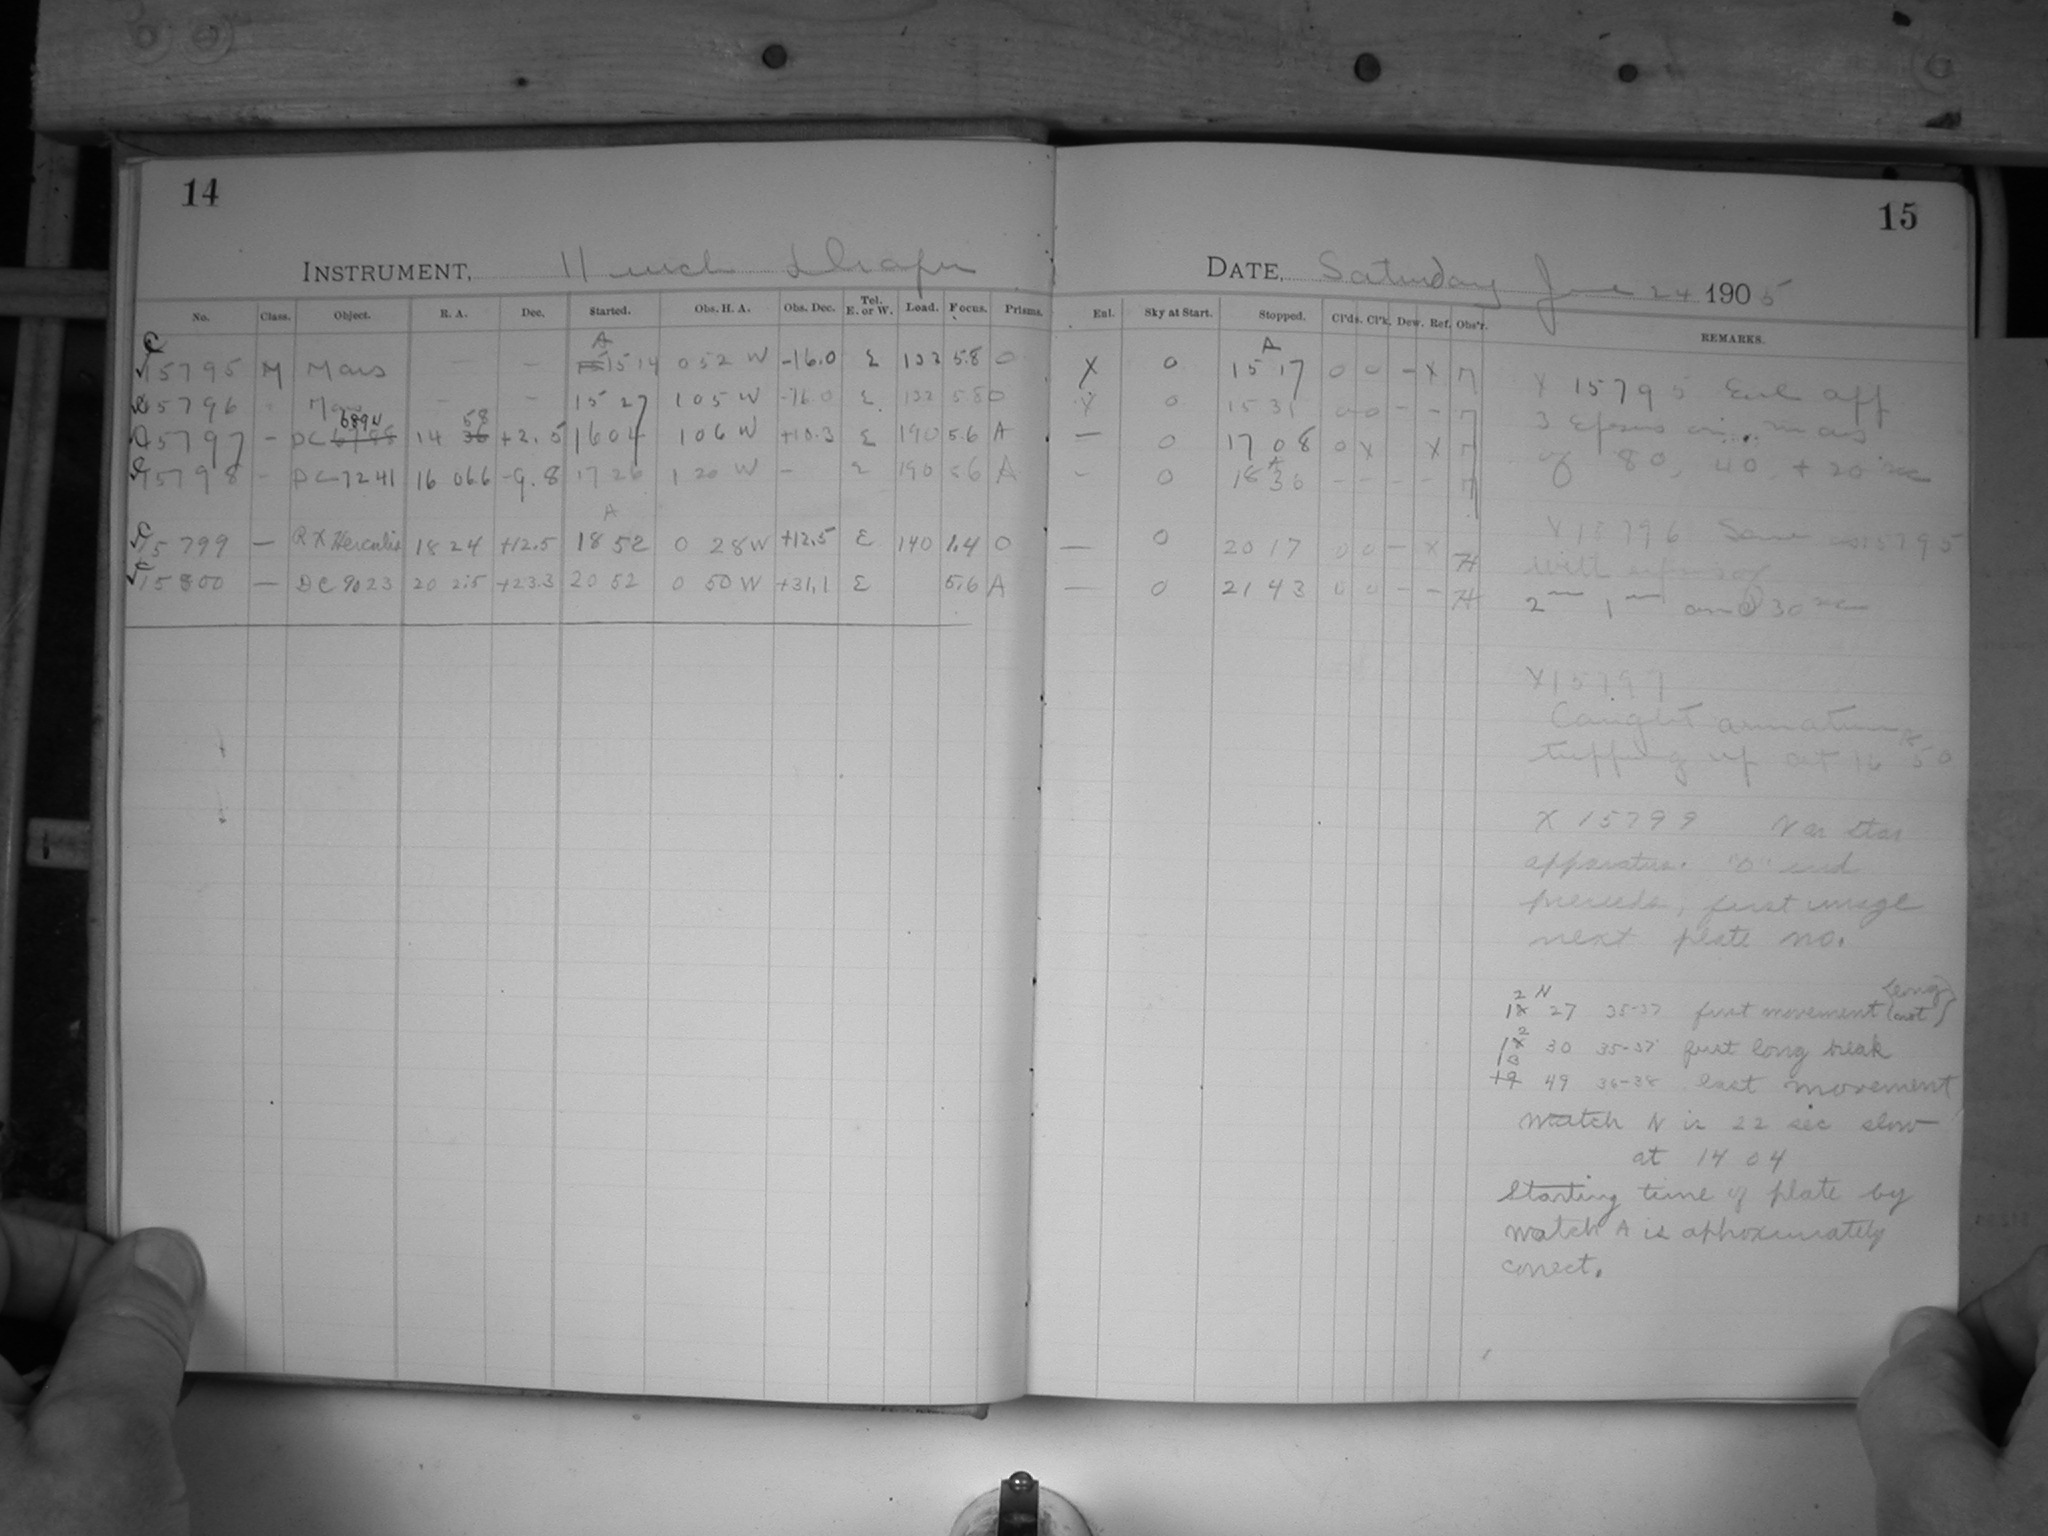 14
INSTRUMENT, 11 inch Draper
No. Class. Object. R. A. Dec. Started. Obs. H. A. Obs. Dec. Tel. E. or W. Load. Focus. Prisms.
A
15795 M Mars — — 15 14 0 52 W -16.0 E 132 5.8 0
15796 Mars - - 15 27 1 05 W -16.0 E 132 5.8 0
6894 58
15797 - DC 6788 14 36 +2.5 16 04 1 06 W +10.3 E 190 5.6 A
15798 - DC 7241 16 06.6 -9.8 17 26 1 20 W - E 190 5.6 A
A
15799 — RX Herculis 18 24 +12.5 18 52 0 28 W +12.5 E 140 1.4 0
15800 — DC 9023 20 2.5 +23.3 20 52 0 50 W +31.1 E 5.6 A
15
DATE, Saturday June 24 1905
Enl. Sky at Start. Stopped. Cl'ds. Cl'k. Dew. Ref. Obs'r. REMARKS.
A
X 0 15 17 0 0 - X
X 0 15 31 0 0 - -
— 0 17 08 0 X X
- 0 18 36 - - - -
— 0 20 17 0 0 - X H
— 0 21 43 0 0 - - H
X 15795 Enl off
3 Mars
of 80, 40, + 20 sec
X 15796 Same as 15795
with
2 m 1 m and 30 sec
X 15797
Caught armature
tripping up at 16 50
X 15799 Var star
apparatus. "0" end
precedes, first image
next plate no.
2 N
1X 27 35-37 first movement (long) (not)
2
1X 30 35-37 first long break
13
19 49 36-38 last movement
Watch N is 22 sec slow
at 14 04
Starting time of plate by
watch A is approximately
correct.